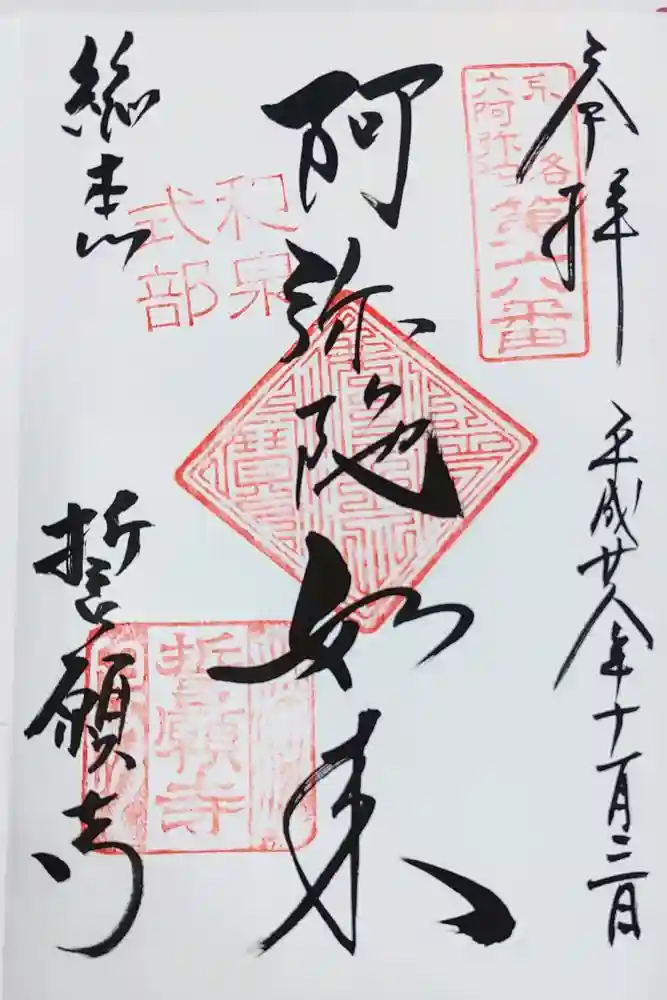 奉拝
平成廿八年十一月三日
京洛
六阿弥陀
第六番
阿弥陀如来
和泉
式部
総本山
誓願寺
誓願寺